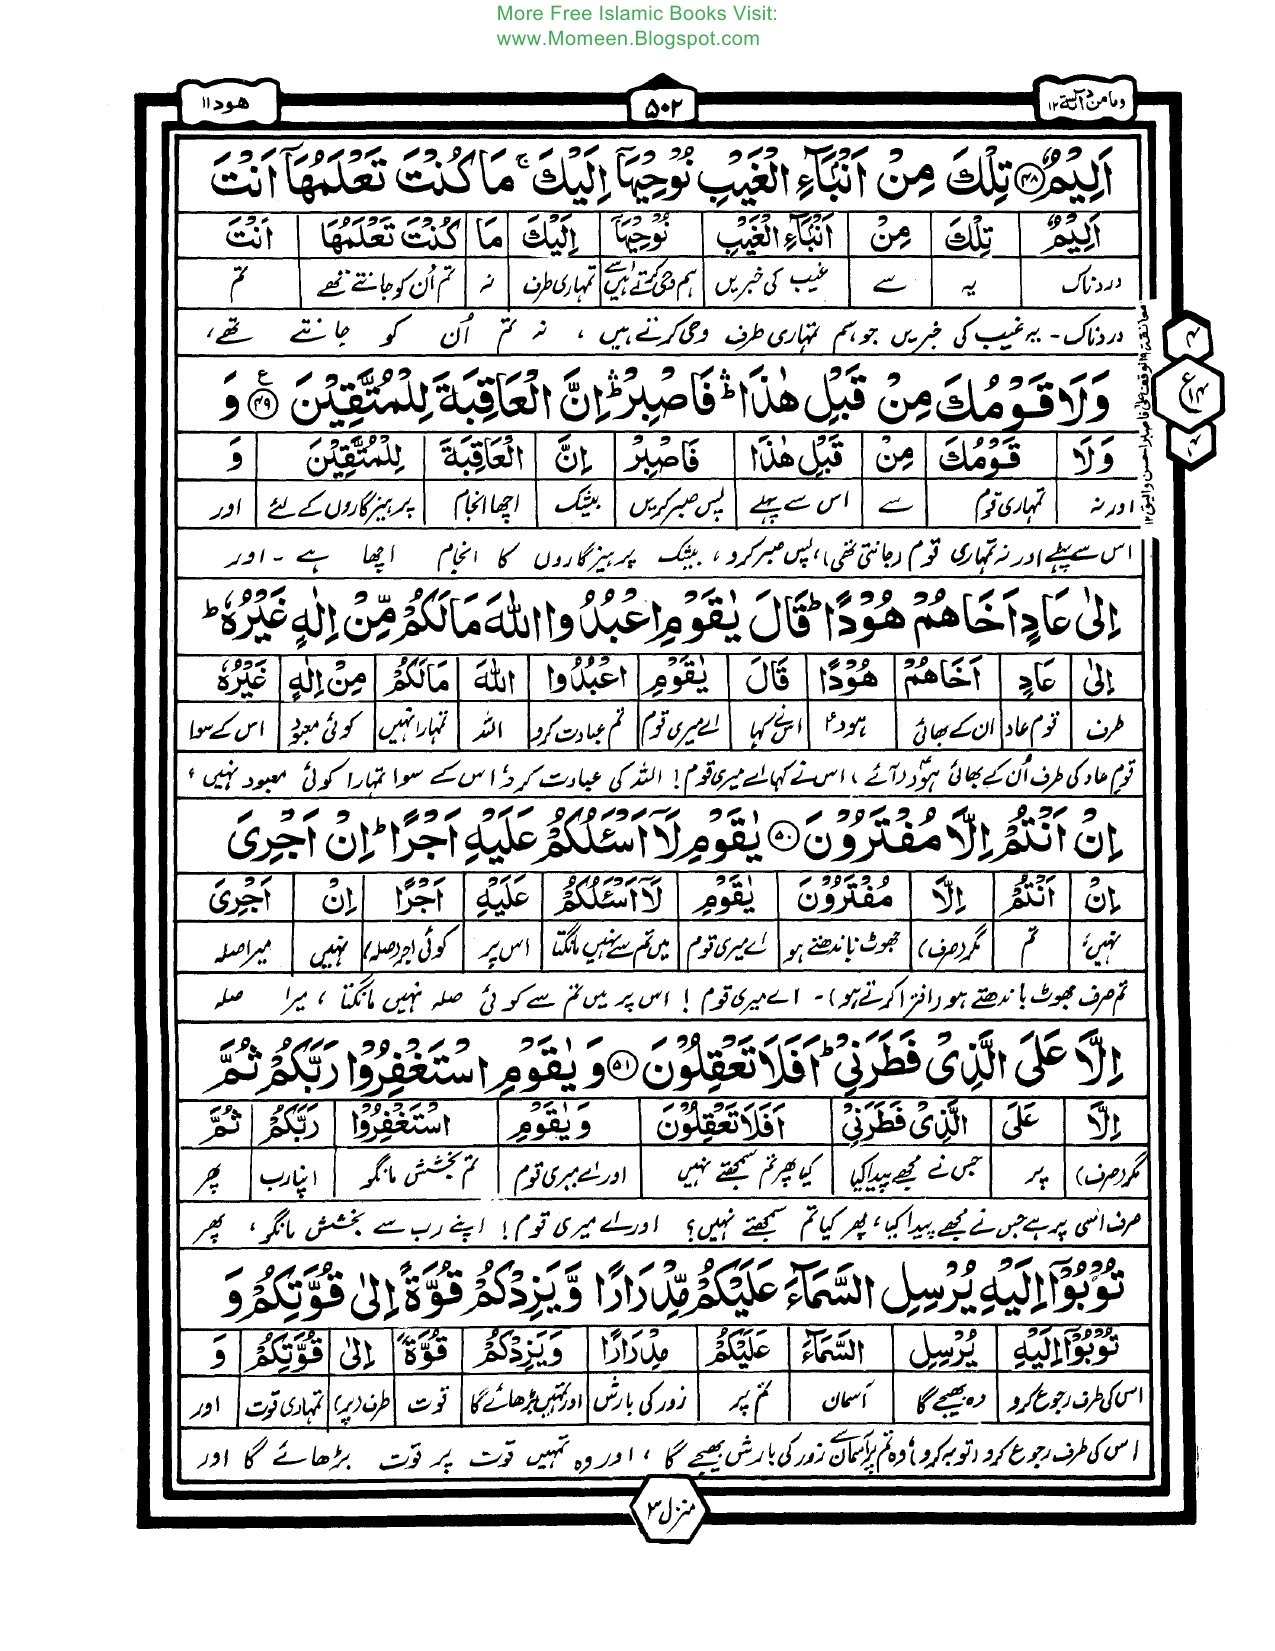 More Free Islamic Books Visit:
www.Momeen.Blogspot.com
ومامن دآبة ۱۲
۵۰۲
هود ۱۱
اَلِيْمٌ ﴿۴۸﴾ تِلْكَ مِنْ اَنْۢبَآءِ الْغَيْبِ نُوْحِيْهَاۤ اِلَيْكَ ۚ مَا كُنْتَ تَعْلَمُهَاۤ اَنْتَ
اَلِيْمٌ تِلْكَ مِنْ اَنْۢبَآءِ الْغَيْبِ نُوْحِيْهَاۤ اِلَيْكَ مَا كُنْتَ تَعْلَمُهَاۤ اَنْتَ
دردناک یہ سے غیب کی خبریں ہم وحی کرتے ہیں اسے تمہاری طرف نہ تم اُن کو جانتے تھے تم
دردناک ۔ یہ غیب کی خبریں جو ہم تمہاری طرف وحی کرتے ہیں ، نہ تم اُن کو جانتے تھے ،
وَلَا قَوْمُكَ مِنْ قَبْلِ هٰذَا ۛ فَاصْبِرْ ۛ اِنَّ الْعَاقِبَةَ لِلْمُتَّقِيْنَ ﴿۴۹﴾ وَ
وَلَا قَوْمُكَ مِنْ قَبْلِ هٰذَا فَاصْبِرْ اِنَّ الْعَاقِبَةَ لِلْمُتَّقِيْنَ وَ
اور نہ تمہاری قوم سے اس سے پہلے پس صبر کریں بیشک اچھا انجام پرہیزگاروں کے لئے اور
اس سے پہلے اور نہ تمہاری قوم (جانتی تھی) ، پس صبر کرو ، بیشک پرہیزگاروں کا انجام اچھا ہے ۔ اور
اِلٰى عَادٍ اَخَاهُمْ هُوْدًا ؕ قَالَ يٰقَوْمِ اعْبُدُوا اللّٰهَ مَا لَكُمْ مِّنْ اِلٰهٍ غَيْرُهٗ ؕ
اِلٰى عَادٍ اَخَاهُمْ هُوْدًا قَالَ يٰقَوْمِ اعْبُدُوا اللّٰهَ مَا لَكُمْ مِنْ اِلٰهٍ غَيْرُهٗ
طرف قوم عاد ان کے بھائی ہود اس نے کہا اے میری قوم تم عبادت کرو اللہ تمہارا نہیں کوئی معبود اس کے سوا
قوم عاد کی طرف اُن کے بھائی ہود (آئے) ، اس نے کہا اے میری قوم ! اللہ کی عبادت کرو ، اس کے سوا تمہارا کوئی معبود نہیں ،
اِنْ اَنْتُمْ اِلَّا مُفْتَرُوْنَ ﴿۵۰﴾ يٰقَوْمِ لَاۤ اَسْـَٔلُكُمْ عَلَيْهِ اَجْرًا ؕ اِنْ اَجْرِىَ
اِنْ اَنْتُمْ اِلَّا مُفْتَرُوْنَ يٰقَوْمِ لَاۤ اَسْـَٔلُكُمْ عَلَيْهِ اَجْرًا اِنْ اَجْرِىَ
نہیں تم مگر (صرف) جھوٹ باندھتے ہو اے میری قوم میں تم سے نہیں مانگتا اس پر کوئی اجر (صلہ) نہیں میرا صلہ
تم صرف جھوٹ باندھتے ہو (افترا کرتے ہو) ۔ اے میری قوم ! اس پر میں تم سے کوئی صلہ نہیں مانگتا ، میرا صلہ
اِلَّا عَلَى الَّذِىْ فَطَرَنِىْ ؕ اَفَلَا تَعْقِلُوْنَ ﴿۵۱﴾ وَ يٰقَوْمِ اسْتَغْفِرُوْا رَبَّكُمْ ثُمَّ
اِلَّا عَلَى الَّذِىْ فَطَرَنِىْ اَفَلَا تَعْقِلُوْنَ وَيٰقَوْمِ اسْتَغْفِرُوْا رَبَّكُمْ ثُمَّ
مگر (صرف) پر جس نے مجھے پیدا کیا کیا پھر تم سمجھتے نہیں اور اے میری قوم تم بخشش مانگو اپنا رب پھر
صرف اسی پر ہے جس نے مجھے پیدا کیا ، پھر کیا تم سمجھتے نہیں ؟ اور اے میری قوم ! اپنے رب سے بخشش مانگو ، پھر
تُوْبُوْۤا اِلَيْهِ يُرْسِلِ السَّمَآءَ عَلَيْكُمْ مِّدْرَارًا وَّ يَزِدْكُمْ قُوَّةً اِلٰى قُوَّتِكُمْ وَ
تُوْبُوْۤا اِلَيْهِ يُرْسِلِ السَّمَآءَ عَلَيْكُمْ مِدْرَارًا وَيَزِدْكُمْ قُوَّةً اِلٰى قُوَّتِكُمْ وَ
اس کی طرف رجوع کرو وہ بھیجے گا آسمان تم پر زور کی بارش اور تمہیں بڑھائے گا قوت طرف (پر) تمہاری قوت اور
اس کی طرف رجوع کرو (توبہ کرو) وہ تم پر آسمان سے زور کی بارش بھیجے گا ، اور وہ تمہیں قوت پر قوت بڑھائے گا اور
منزل ۳